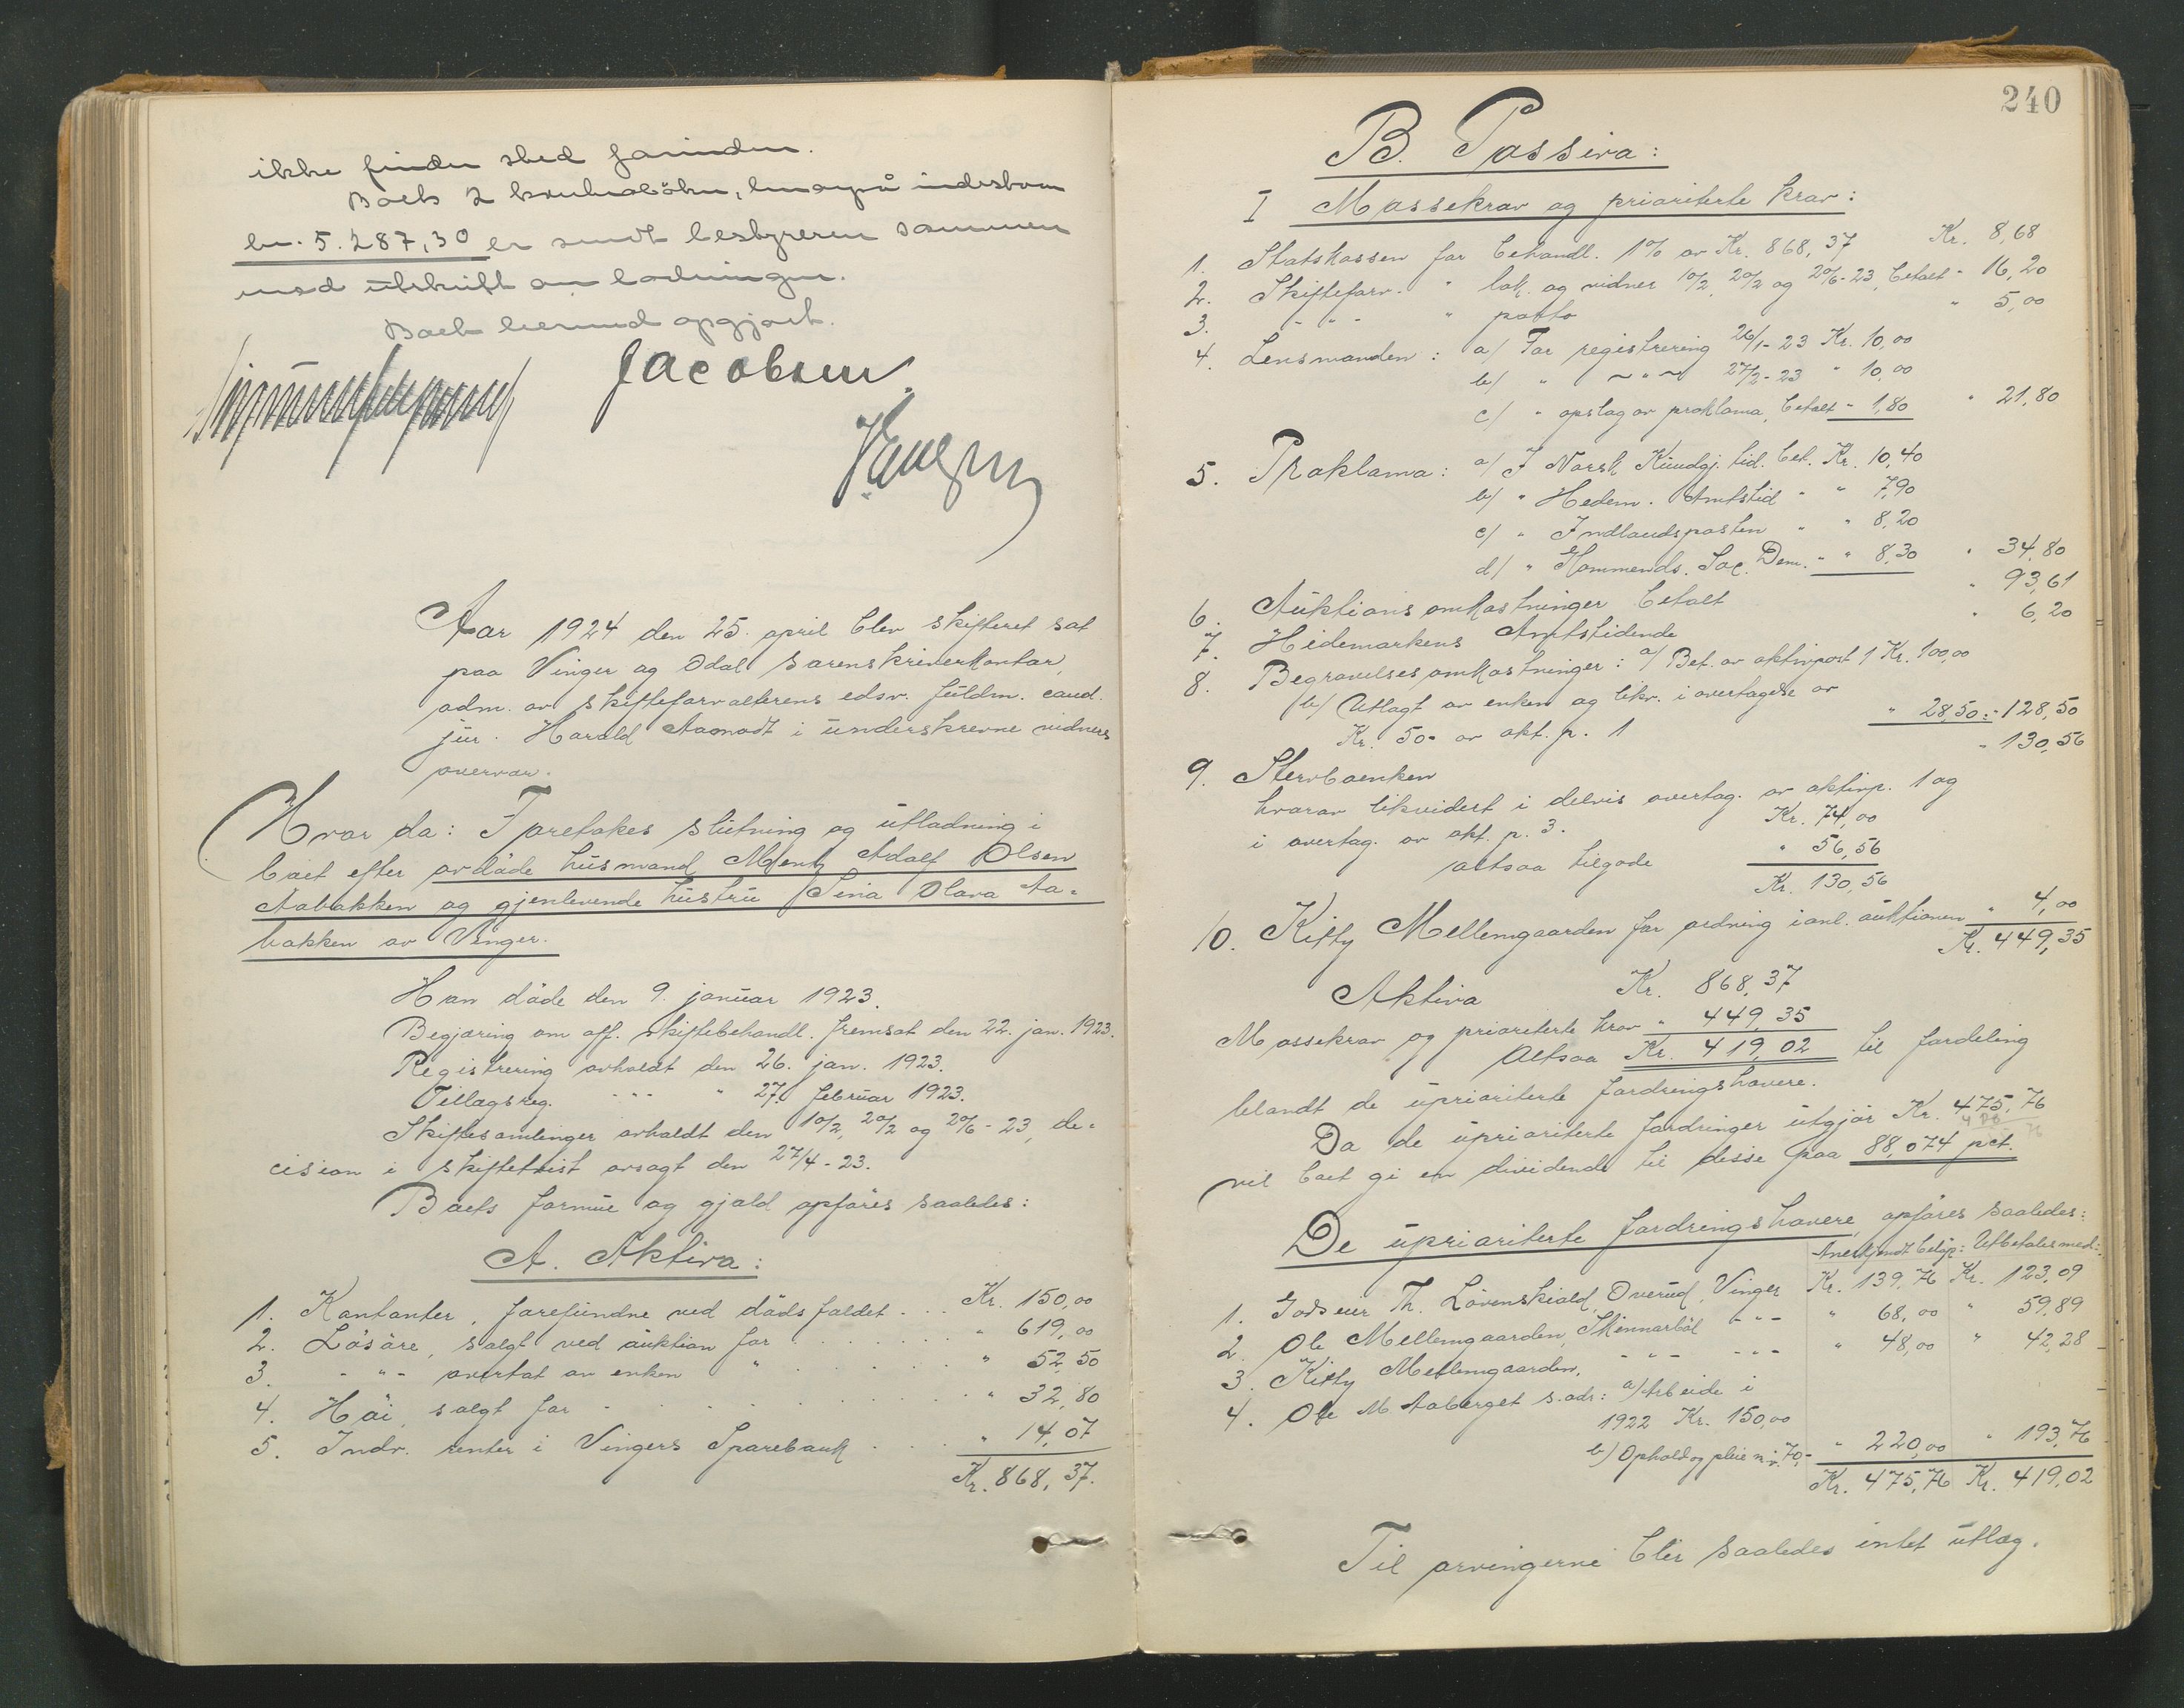 ikke finder sted forinden.
Boets 2 kontrabøker, hvorpå indestaar
kr. 5.287,30 er sendt bestyreren sammen
med utskrift av lodningen.
Boet hermed opgjort.
Jacobsen
Aar 1924 den 25. april blev skifteret sat
paa Vinger og Odal sorenskriverkontor,
adm. av skifteforvalterens edsv. fuldm. cand.
jur. Harald Aamodt i underskrevne vidners
overvær.
Hvor da: Foretokes slutning og utlodning i
boet efter avdøde husmand Mentz Adolf Olsen
Aabakken og gjenlevende hustru Sina Olava Aa-
bakken av Vinger.
Han døde den 9. januar 1923.
Begjæring om off. skiftebehandl. fremsat den 22. jan. 1923.
Registrering avholdt den 26. jan. 1923.
Tillægsreg. - " - " 27. februar 1923.
Skiftesamlinger avholdt den 10/2, 20/2 og 20/6-23, de-
cision i skiftetvist avsagt den 27/4-23.
Boets formue og gjæld opføres saaledes:
A. Aktiva:
1. Kontanter, forefundne ved dødsfaldet . . . Kr. 150,00
2. Løsøre, solgt ved auktion for . . . . . " 619,00
3. - " - overtat av enken " . . . . . " 52,50
4. Høi, solgt for . . . . . . " 32,80
5. Indv. renter i Vingers Sparebank . . . . " 14,07
Kr. 868,37.
240
B. Passiva:
I Massekrav og prioriterte krav:
1. Statskassen for behandl. 1% av Kr. 868,37 Kr. 8,68
2. Skifteforv. " lok. og vidner 10/2, 20/2 og 20/6-23, betalt " 16,20
3. - " - " porto " 5,00
4. Lensmanden: a/ For registrering 26/1-23 Kr. 10,00
b/ " ~ " ~ 27/2-23 " 10,00
c/ " opslag av proklama, betalt " 1,80 " 21,80
5. Proklama: a/ I Norsk Kundgj. tid. bet. Kr. 10,40
b/ " Hedem. Amtstid " " 7,90
c/ " Indlandsposten " " 8,20
d/ " Glommends. Soc. Dem. " " 8,30 " 34,80
6. Auktionsomkostninger betalt " 93,61
7. Hedemarkens Amtstidende " 6,20
8. Begravelsesomkostninger: a/ Bet. av aktivpost 1 Kr. 100,00
b/ Utlagt av enken og likv. i overtagelse av
Kr. 50- av akt. p. 1 " 28,50 : " 128,50
9. Stervboenken " 130,56
hvorav likvidert i delvis overtag. av aktivp. 1 og
i overtag. av akt. p. 3. Kr. 74,00
altsaa tilgode " 56,56
Kr. 130,56
10. Kitty Mellemgaarden for ordning i anl. auktionen " 4,00
Kr. 449,35
Aktiva Kr. 868,37
Massekrav og prioriterte krav " 449,35
Altsaa Kr. 419,02 til fordeling
blandt de uprioriterte fordringshavere.
Da de uprioriterte fordringer utgjør Kr. 475,76
vil boet gi en dividende til disse paa 88,074 pct.
De uprioriterte fordringshavere opføres saaledes:
Anerkjendt beløp: Utbetales med:
1. Godseier Th. Løvenskiold, Overud, Vinger Kr. 139,76 Kr. 123,09
2. Ole Mellemgaarden, Skinnarbøl - " - " 68,00 " 59,89
3. Kitty Mellemgaarden, - " - - " - " 48,00 " 42,28
4. Ole M. Aaberget s.adr: a/ Arbeide i
1922 Kr. 150,00
b/ Ophold og pleie 70,- " 220,00 " 193,76
Kr. 475,76 Kr. 419,02
Til arvingerne blir saaledes intet utlæg.